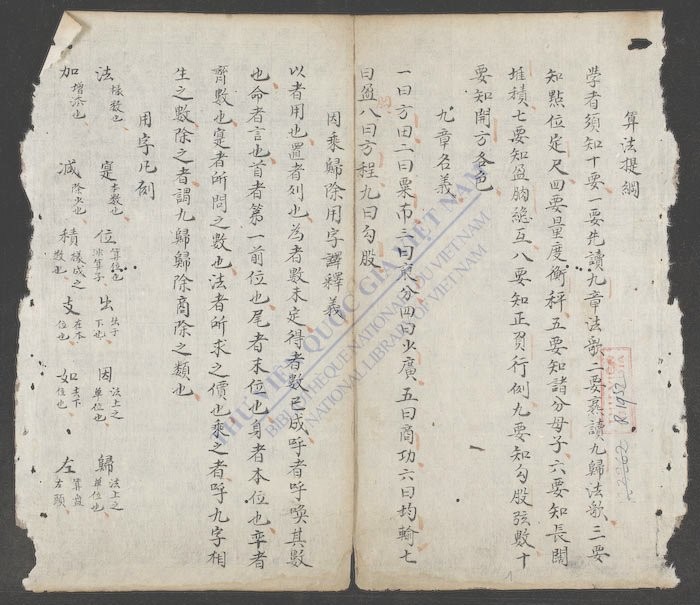 算法提綱
學者須知十要一要先讀九章法歌二要熟讀九歸法歌三要
知點位定尺四要量度衡秤五要知諸分母子六要知長闊
堆積七要知盈朒總互八要知正負行例九要知勾股弦數十
要知開方各色
九章名義
一曰方田二曰粟布三曰衰分四曰少廣五曰商功六曰均輸七
曰盈八曰方程九曰勾股
因乘歸除用字譯釋義
以者用也置者列也為者數未定得者數已成呼者呼喚其數
也命者言也首者第一前位也尾者末位也身者本位也率者
齊數也寔者所問之數也法者所求之價也乘之者呼九字相
生之數除之者謂九歸歸除商除之類也
用字凡例
法 樣數也 寔 本數也 位 算位也 出 因 法上之單位也 歸 法上之單位也
加 增添也 減 除少也 積 樣成之數也 支 在本位也 如 去下位也 左 算盤左頭
THƯ VIỆN QUỐC GIA VIỆT NAM
BIBLIOTHEQUE NATIONALE DU VIETNAM
NATIONAL LIBRARY OF VIETNAM
R.1952